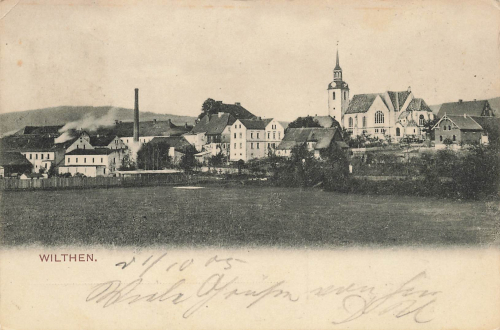 WILTHEN.
21/10 05
Viele Grüße von